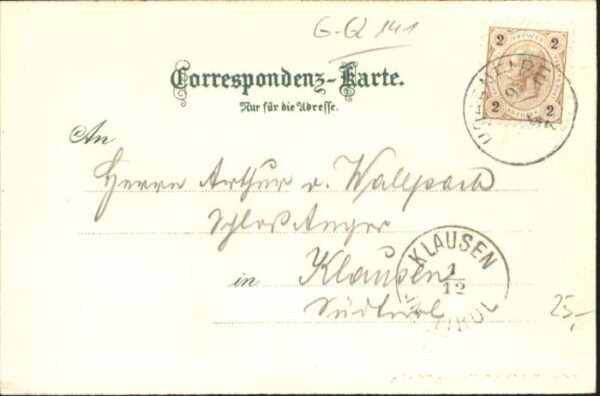 G-Q 141
2 2
2 2
Correspondenz-Karte.
Nur für die Adresse.
An
Herrn Arthur v. Wallpach
Schloß Anger
in Klausen
Südtirol
KLAUSEN
1/12
TIROL
25,-